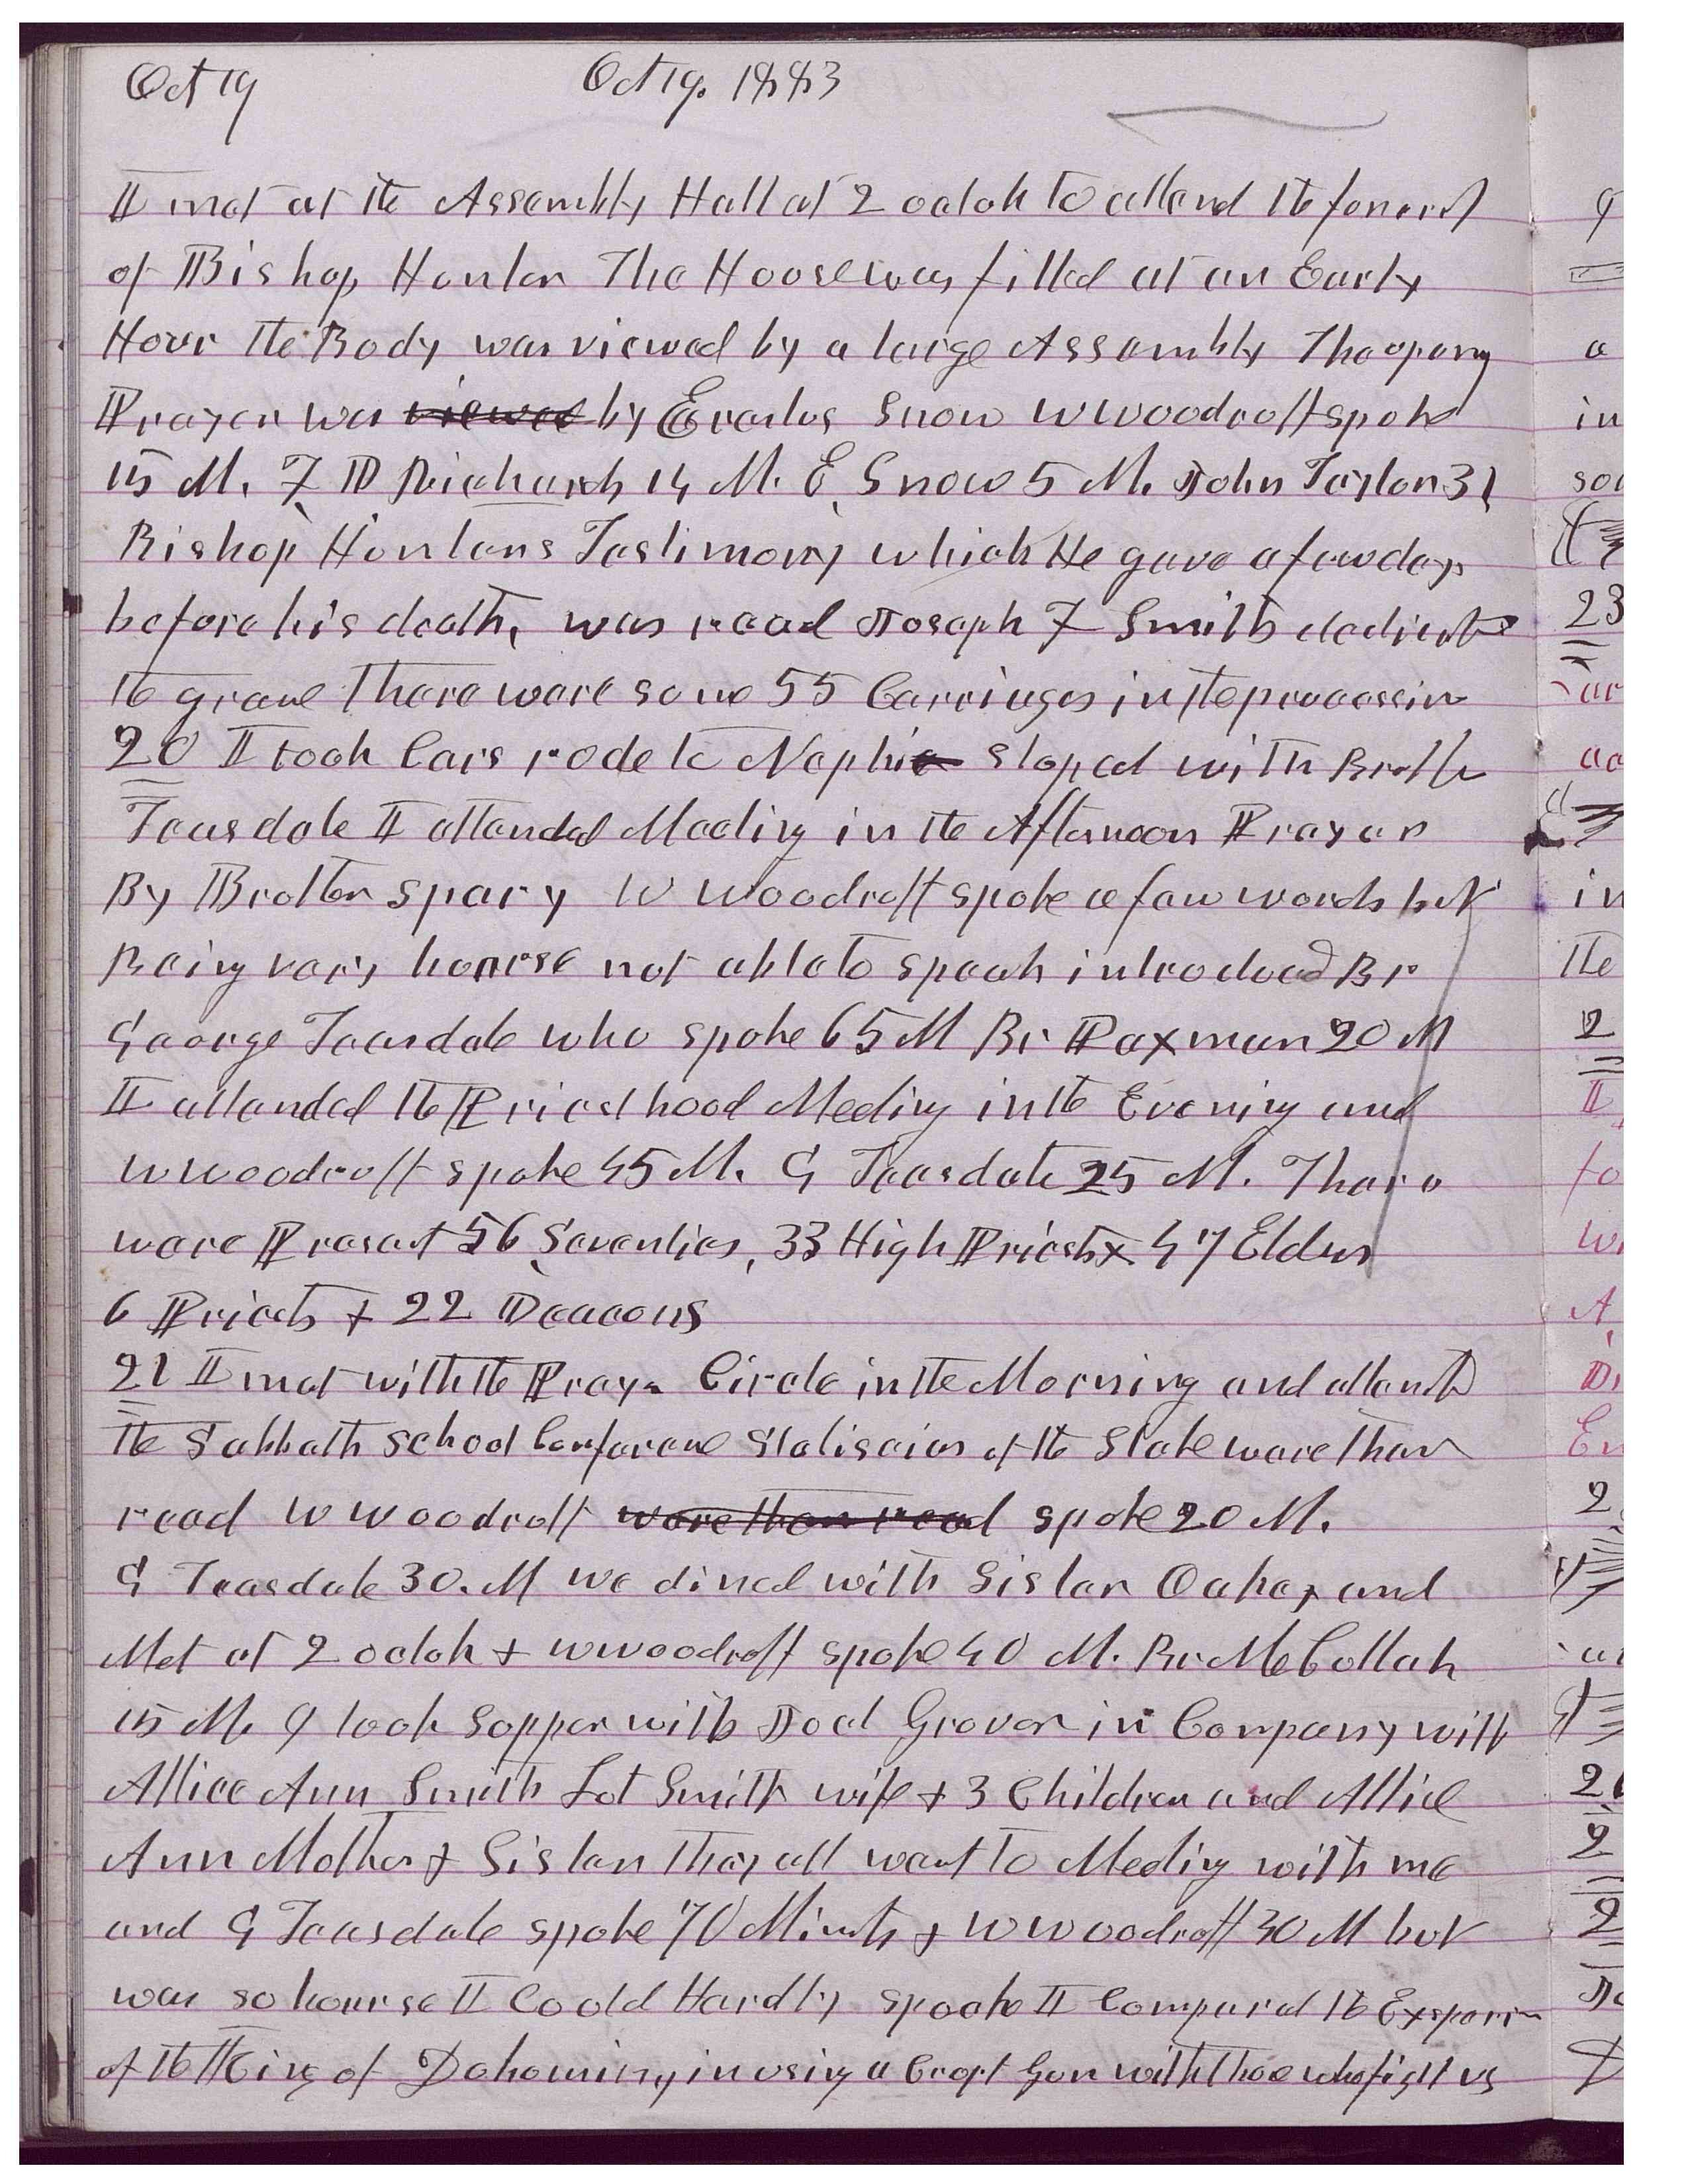 Oct 19 Oct 19. 1883
I met at the Assembly Hall at 2 oclok to attend the funeral
of Bishop Hunter The House was filled at an Early
Hour the Body was viewed by a large Assembly The opning
Prayer was viewed by Erastus Snow W Woodruff spoke
15 M. F D Richards 14 M. E Snow 5 M. John Taylor 31
Bishop Hunters Testimony which He gave a few days
before his death, was read Joseph F Smith dedicated
the grave There were some 55 Carriages in the procession
20 I took Cars rode to Nephi stoped with Brother
Teasdale I attended Meeting in the Afternoon Prayer
By Brother Spery W Woodruff spoke a few words but
Being very hoarse not able to speak introduced Br
George Teasdale who spoke 65 M Br Paxman 20 M
I attended the Priesthood Meeting in the Evening and
W Woodruff spoke 45 M. G Teasdale 25 M. There
were Present 56 Seventies, 33 High Priests + 47 Elders
6 Priests + 22 Deacons
21 I met with the Prayer Circle in the Morning and attended
the Sabbath school Conference Statistics of the Stake were then
read W Woodruff were then read spoke 20 M.
G Teasdale 30. M we dined with Sister Oakey and
Met at 2 oclok + W Woodruff spoke 40 M. Br McCollah
15 M. I took Supper with Joel Grover in Company with
Allice Ann Smith Lot Smith wife + 3 Children and Allice
Ann Mother + Sister They all went to Meeting with me
and G Teasdale spoke 70 Minuts + W Woodruff 30 M but
was so hourse I Could Hardly speak I Compared the Experien
of the King of Dahominy, in using a Crupt Gun with those who fight us